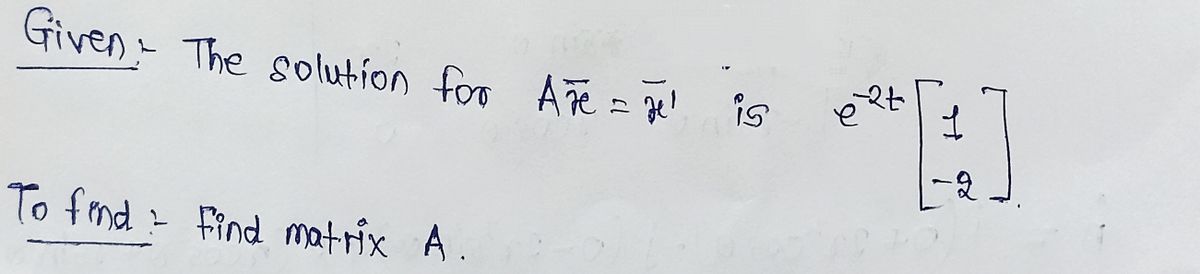 Given:- The solution for Ax̄ = x̄' is e^-2t [1 -2].
To find :- Find matrix A.